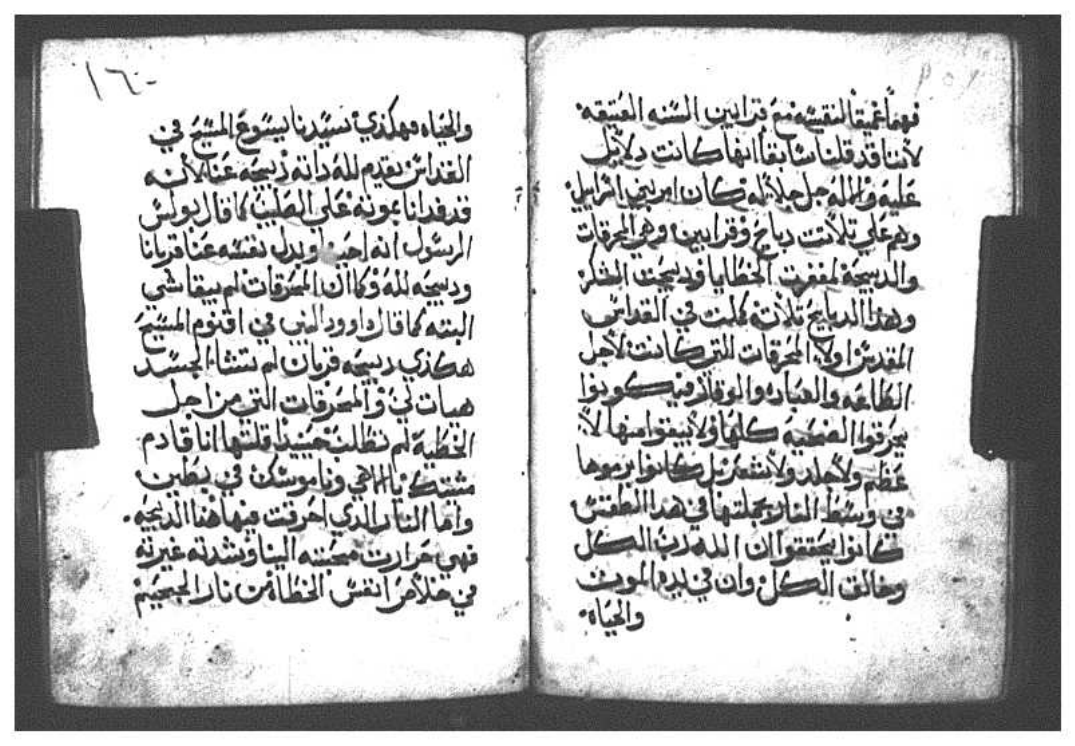 فهما عميقا لنقيسه مع قرابين السنه العتيقه
لاننا قد قلنا سابقا انها كانت دلايل
عليه والله جل جلاله كان امر بني اسراييل
وهم علي تلاتت دبايح وقرابين وهي المحرقات
والدبيحة لمغفرت الخطايا ودبيحت الشكر
وهذا الدبايح تلاته كملت في القداس
المقدس اولا المحرقات التي كانت لاجل
الطاعه والعباده والوقار فيكونوا
يحرقوا الضحيه كلها ولا يبقوا منها لا
عظم ولا جلد ولا شعر بل كانوا يرموها
في وسط النار بجملتها في هدا الطقس
كانوا يحققوا ان الله رب الكل
وخالق الكل وان في يده الموت
والحياه
١٦٠
والحياه فهكذي سيدنا يسوع المسيح في
القداس يقدم لله داته دبيحه عنا لانه
قد فدانا بموته علي الصليب كما قال بولس
الرسول انه احبنا وبدل نفسه عنا قربانا
ودبيحه لله وكما ان المحرقات لم يبقا شي
البته كما قال داوود النبي في اقنوم المسيح
هكذي دبيحه قربان لم تشاء الجسد
هيات لي والمحرقات التي من اجل
الخطية لم تطلب حينيدا قلتها انا قادم
مشيتك يا الاهي وناموسك في بطني
واما النار الدي احرقت فيها هدا الدبيحه
فهي حرارت محبته الينا وشدته غيرته
في خلاص انفس الخطاه من نار الجحيم